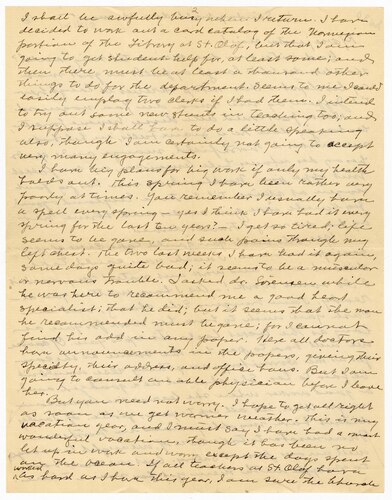 2
I shall be awfully busy when I return. I have
decided to work out a card catalog of the Norwegian
portion of the Library at St. Olaf, but that I am
going to get student help for, at least some; and
then there must be at least a thousand other
things to do for the department. Seems to me I could
easily employ two clerks if I had them. I intend
to try out some new stunts in teaching too; and
I suppose I shall have to do a little speaking
also, though I am certainly not going to accept
very many engagements.
I have big plans for big work if only my health
holds out. This spring I have been rather very
poorly at times. You remember I usually have
a spell every spring – yes I think I have had it every
spring for the last ten years? – I get so tired; life
seems to be gone, and such pains through my
left chest. The two last weeks I have had it again,
some days quite bad; it seems to be a muscular
or nervous trouble. I asked Dr. Sorensen while
he was here to recommend me a good heart
specialist; that he did; but it seems that the man
he recommended must be gone; for I cannot
find his add in any paper. Here all doctors
have announcements in the papers, giving their
specialty, their address, and office hours. But I am
going to consult an able physician before I leave
here.
But you need not worry. I hope to get all right
as soon as we get warmer weather. This is my
vacation year, and I must say I have had a most
wonderful vacation, though it has been no
let up in work and worry except the days spent
on the ocean. If all teachers at St. Olaf have
worked
as hard as I have this year, I am sure the church